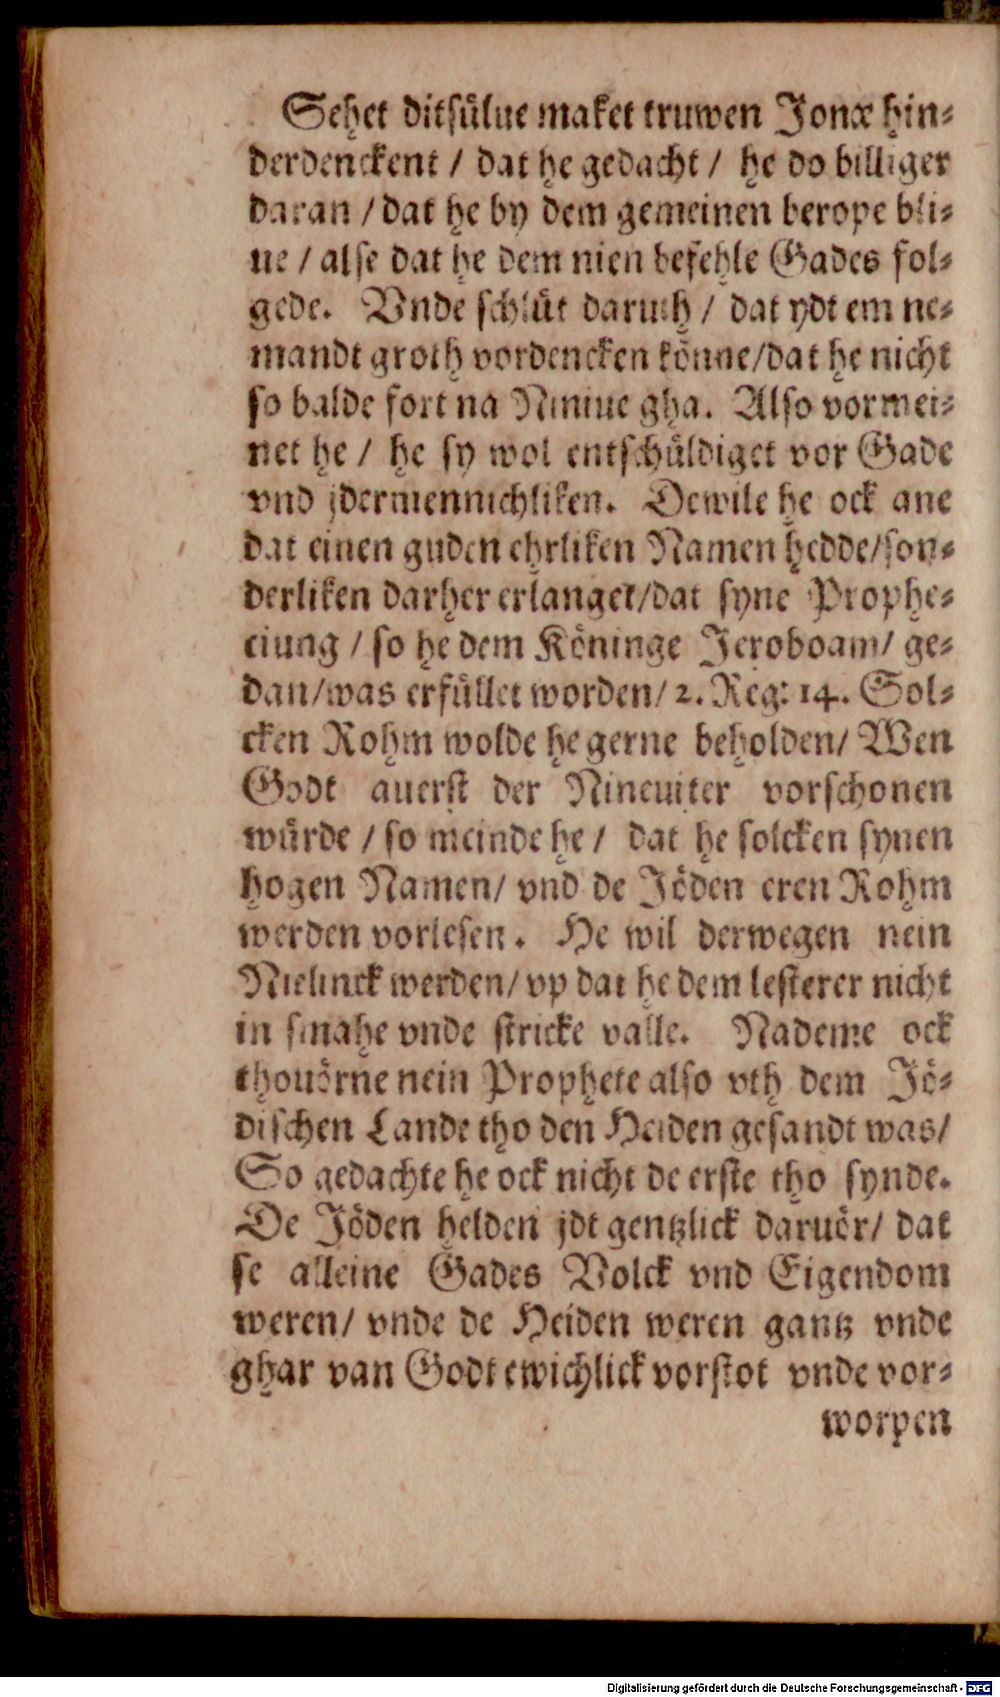 Sehet ditsülue maket truwen Jonæ hin-
derdenckent / dat he gedacht / he do billiger
daran / dat he by dem gemeinen berope bli-
ue / alse dat he dem nien befehle Gades fol-
gede. Vnde schlüt daruth / dat ydt em ne-
mandt groth vordencken könne/dat he nicht
so balde fort na Niniue gha. Also vormei-
net he / he sy wol entschüldiget vor Gade
vnd jdermennichliken. Dewile he ock ane
dat einen guden ehrliken Namen hedde/son-
derliken darher erlanget/dat syne Prophe-
ciung / so he dem Köninge Jeroboam/ ge-
dan/was erfüllet worden/ 2. Reg: 14. Sol-
cken Rohm wolde he gerne beholden/ Wen
Godt auerst der Nineuiter vorschonen
würde / so meinde he / dat he solcken synen
hogen Namen/ vnd de Jöden eren Rohm
werden vorlesen. He wil derwegen nein
Nielinck werden/ vp dat he dem lesterer nicht
in smahe vnde stricke valle. Nademe ock
thouörne nein Prophete also vth dem Jö-
dischen Lande tho den Heiden gesandt was/
So gedachte he ock nicht de erste tho synde.
De Jöden helden jdt gentzlick daruör/ dat
se alleine Gades Volck vnd Eigendom
weren/ vnde de Heiden weren gantz vnde
ghar van Godt ewichlick vorstot vnde vor-
worpen
Digitalisierung gefördert durch die Deutsche Forschungsgemeinschaft - DFG